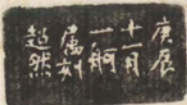 庚辰
十一月
一舸
属刻
超然